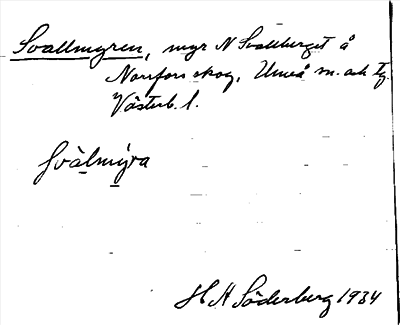 Svallmyren, myr N Svallberget å
Norrfors skog, Umeå m. och tg.
Västerb. l.
Svàlmýra
H A Söderberg 1934